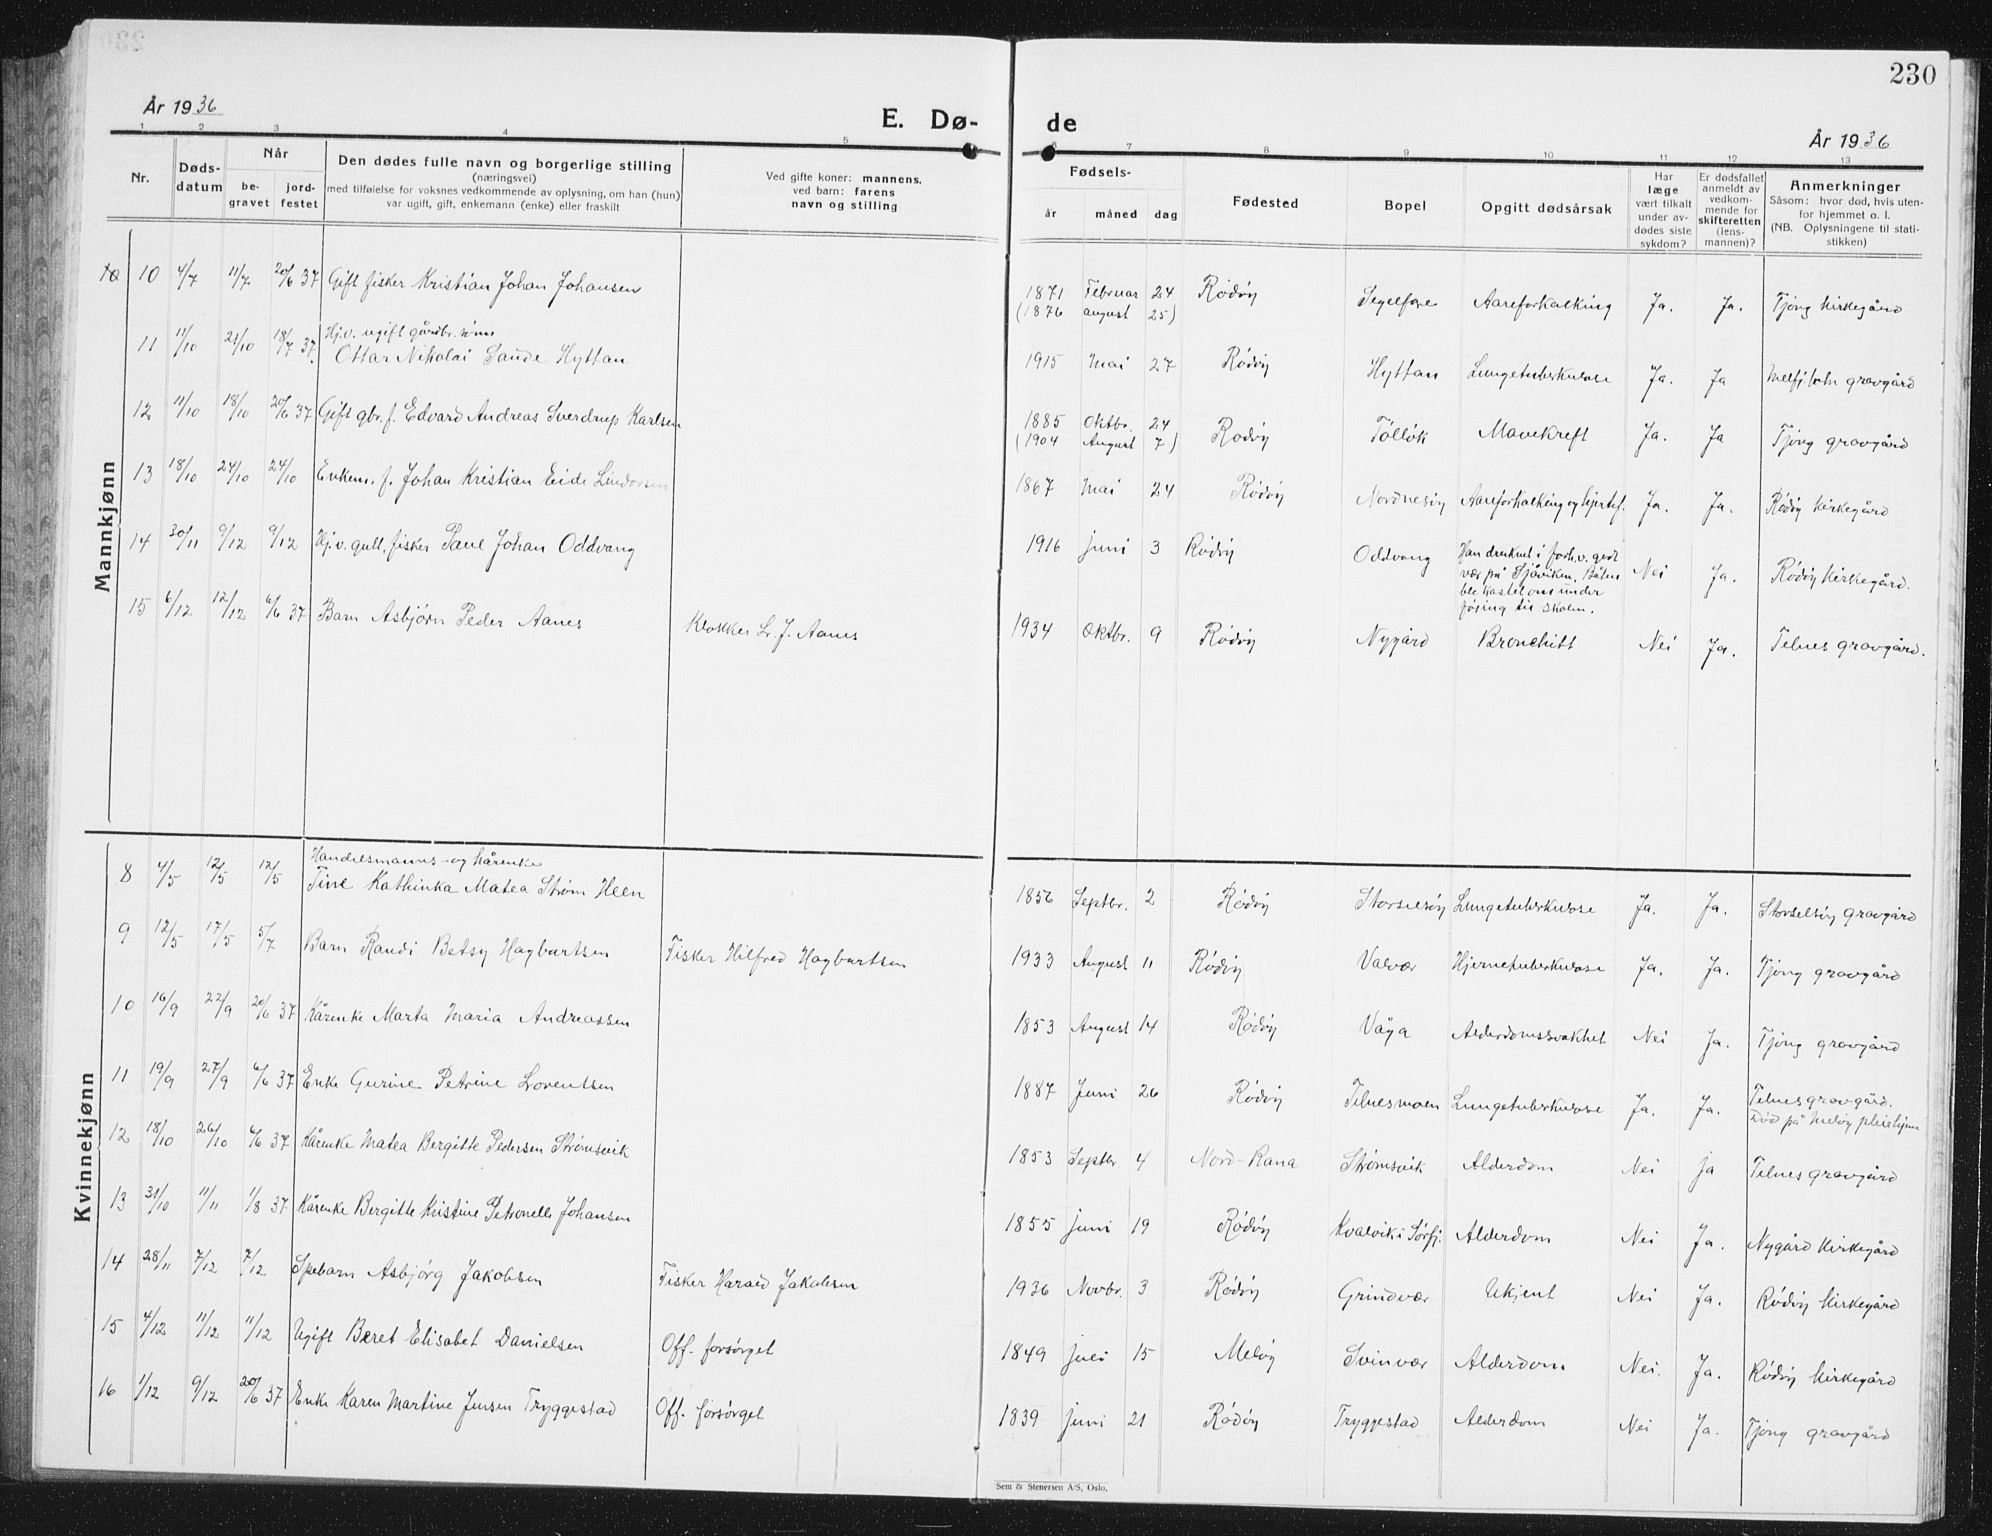 230
År 1936
E. Dø-
de
År 1936
1 2 3 4 5 6 7 8 9 10 11 12 13
Nr.
Døds-
datum
Når
be-
gravet
jord-
festet
Den dødes fulle navn og borgerlige stilling
(næringsvei)
med tilføielse for voksnes vedkommende av oplysning, om han (hun)
var ugift, gift, enkemann (enke) eller fraskilt
Ved gifte koner: mannens,
ved barn: farens
navn og stilling
Fødsels-
år måned dag
Fødested
Bopel
Opgitt dødsårsak
Har
læge
vært tilkalt
under av-
dødes siste
sykdom?
Er dødsfallet
anmeldt av
vedkom-
mende for
skifteretten
(lens-
mannen)?
Anmerkninger
Såsom: hvor død, hvis uten-
for hjemmet o. l.
(NB. Oplysningene til stati-
stikken)
Mannkjønn
10 4/7 11/7 20/6 37 Gift fisker Kristian Johan Johansen 1871 Februar 24 Rödöy Segelfore Aareforkalking Ja. Ja. Tjong Kirkegård
(1876 august 25)
11 11/10 21/10 18/7 37. Hj.v. ugift gårdbr. sönn
Ottar Nikolai Sande Hyttan 1915 Mai 27 Rödöy Hyttan Lungetuberkulose Ja. Ja gravgård
12 11/10 18/10 20/6 37 Gift gbr. f. Edvard Andreas Sverdrup Karlsen 1885 Oktbr. 24 Rodöy Töllök Mavekreft Ja. Ja Tjong gravgård
(1904 August 7)
13 18/10 24/10 24/10 Enkem. f. Johan Kristian Eide 1867 Mai 24 Rödöy Nordnesöy Aareforkalking og hjertef. Ja. Ja. Rödöy Kirkegård
14 30/11 9/12 9/12 Hj.v. fisker Paul Johan Oddvang 1916 juni 3 Rödöy Oddvang Han druknet i forh.v. godt
vær på Sjöviken. Båten
ble kastet om under
til skolen. Nei Ja. Rödöy Kirkegård.
15 6/12 12/12 6/6 37 Barn Asbjörn Peder Aanes Klokker L. J. Aanes 1934 Oktbr. 9 Rödöy Nygård Bronchitt Nei Ja. Telnes gravgård.
Kvinnekjønn
8 4/5 12/5 12/5 Handelsmanns- og kårenke
Tine Kathinka Matea Strøm Heen 1856 Septbr. 2 Rödöy Storselsöy Lungetuberkulose Ja. Ja. Storselsöy gravgård
9 12/5 17/5 5/7 Barn Randi Betsy Hagbartsen Fisker Hilfred Hagbartsen 1933 August 11 Rödöy Valvær Hjernetuberkulose Ja. Ja. Tjong gravgård
10 16/9 22/9 20/6 37 Kårenke Marta Maria Andreassen 1853 August 14 Rödöy Våga Alderdomssvakhet Nei Ja. Tjong gravgård
11 19/9 27/9 6/6 37 Enke Gurine Petrine Lorentsen 1887 Juni 26 Rödöy Telnesmoen Lungetuberkulose Ja. Ja. Telnes gravgård.
Död på Meløy pleiehjem
12 18/10 26/10 6/6 37 Kårenke Matea Bergitte Pedersen Strømsvik 1853 Septbr. 4 Nord-Rana Strømsvik Alderdom Nei ja Telnes gravgård
13 31/10 11/11 1/8 37 Kårenke Bergitte Kristine Petronelle Johansen 1855 juni 19 Rödöy Kvalvik i Sörfj. Alderdom Nei Ja. Nygård Kirkegård
14 28/11 7/12 7/12 Spebarn Asbjörg Jakobsen Fisker Harald Jakobsen 1936 Novbr. 3 Rödöy Grindvær Ukjent Nei Ja. Rödöy Kirkegård
15 4/12 11/12 11/12 Ugift Beret Elisabet Danielsen Off. forsörget 1849 juli 15 Melöy Svinvær Alderdom Nei. Ja. Rödöy Kirkegård
16 1/12 9/12 20/6 37 Enke Karen Martine Jensen Tryggestad Off. forsörget 1839 juni 21 Rödöy Tryggestad Alderdom Nei Ja. Tjong gravgård
Sem & Stenersen A/S, Oslo.